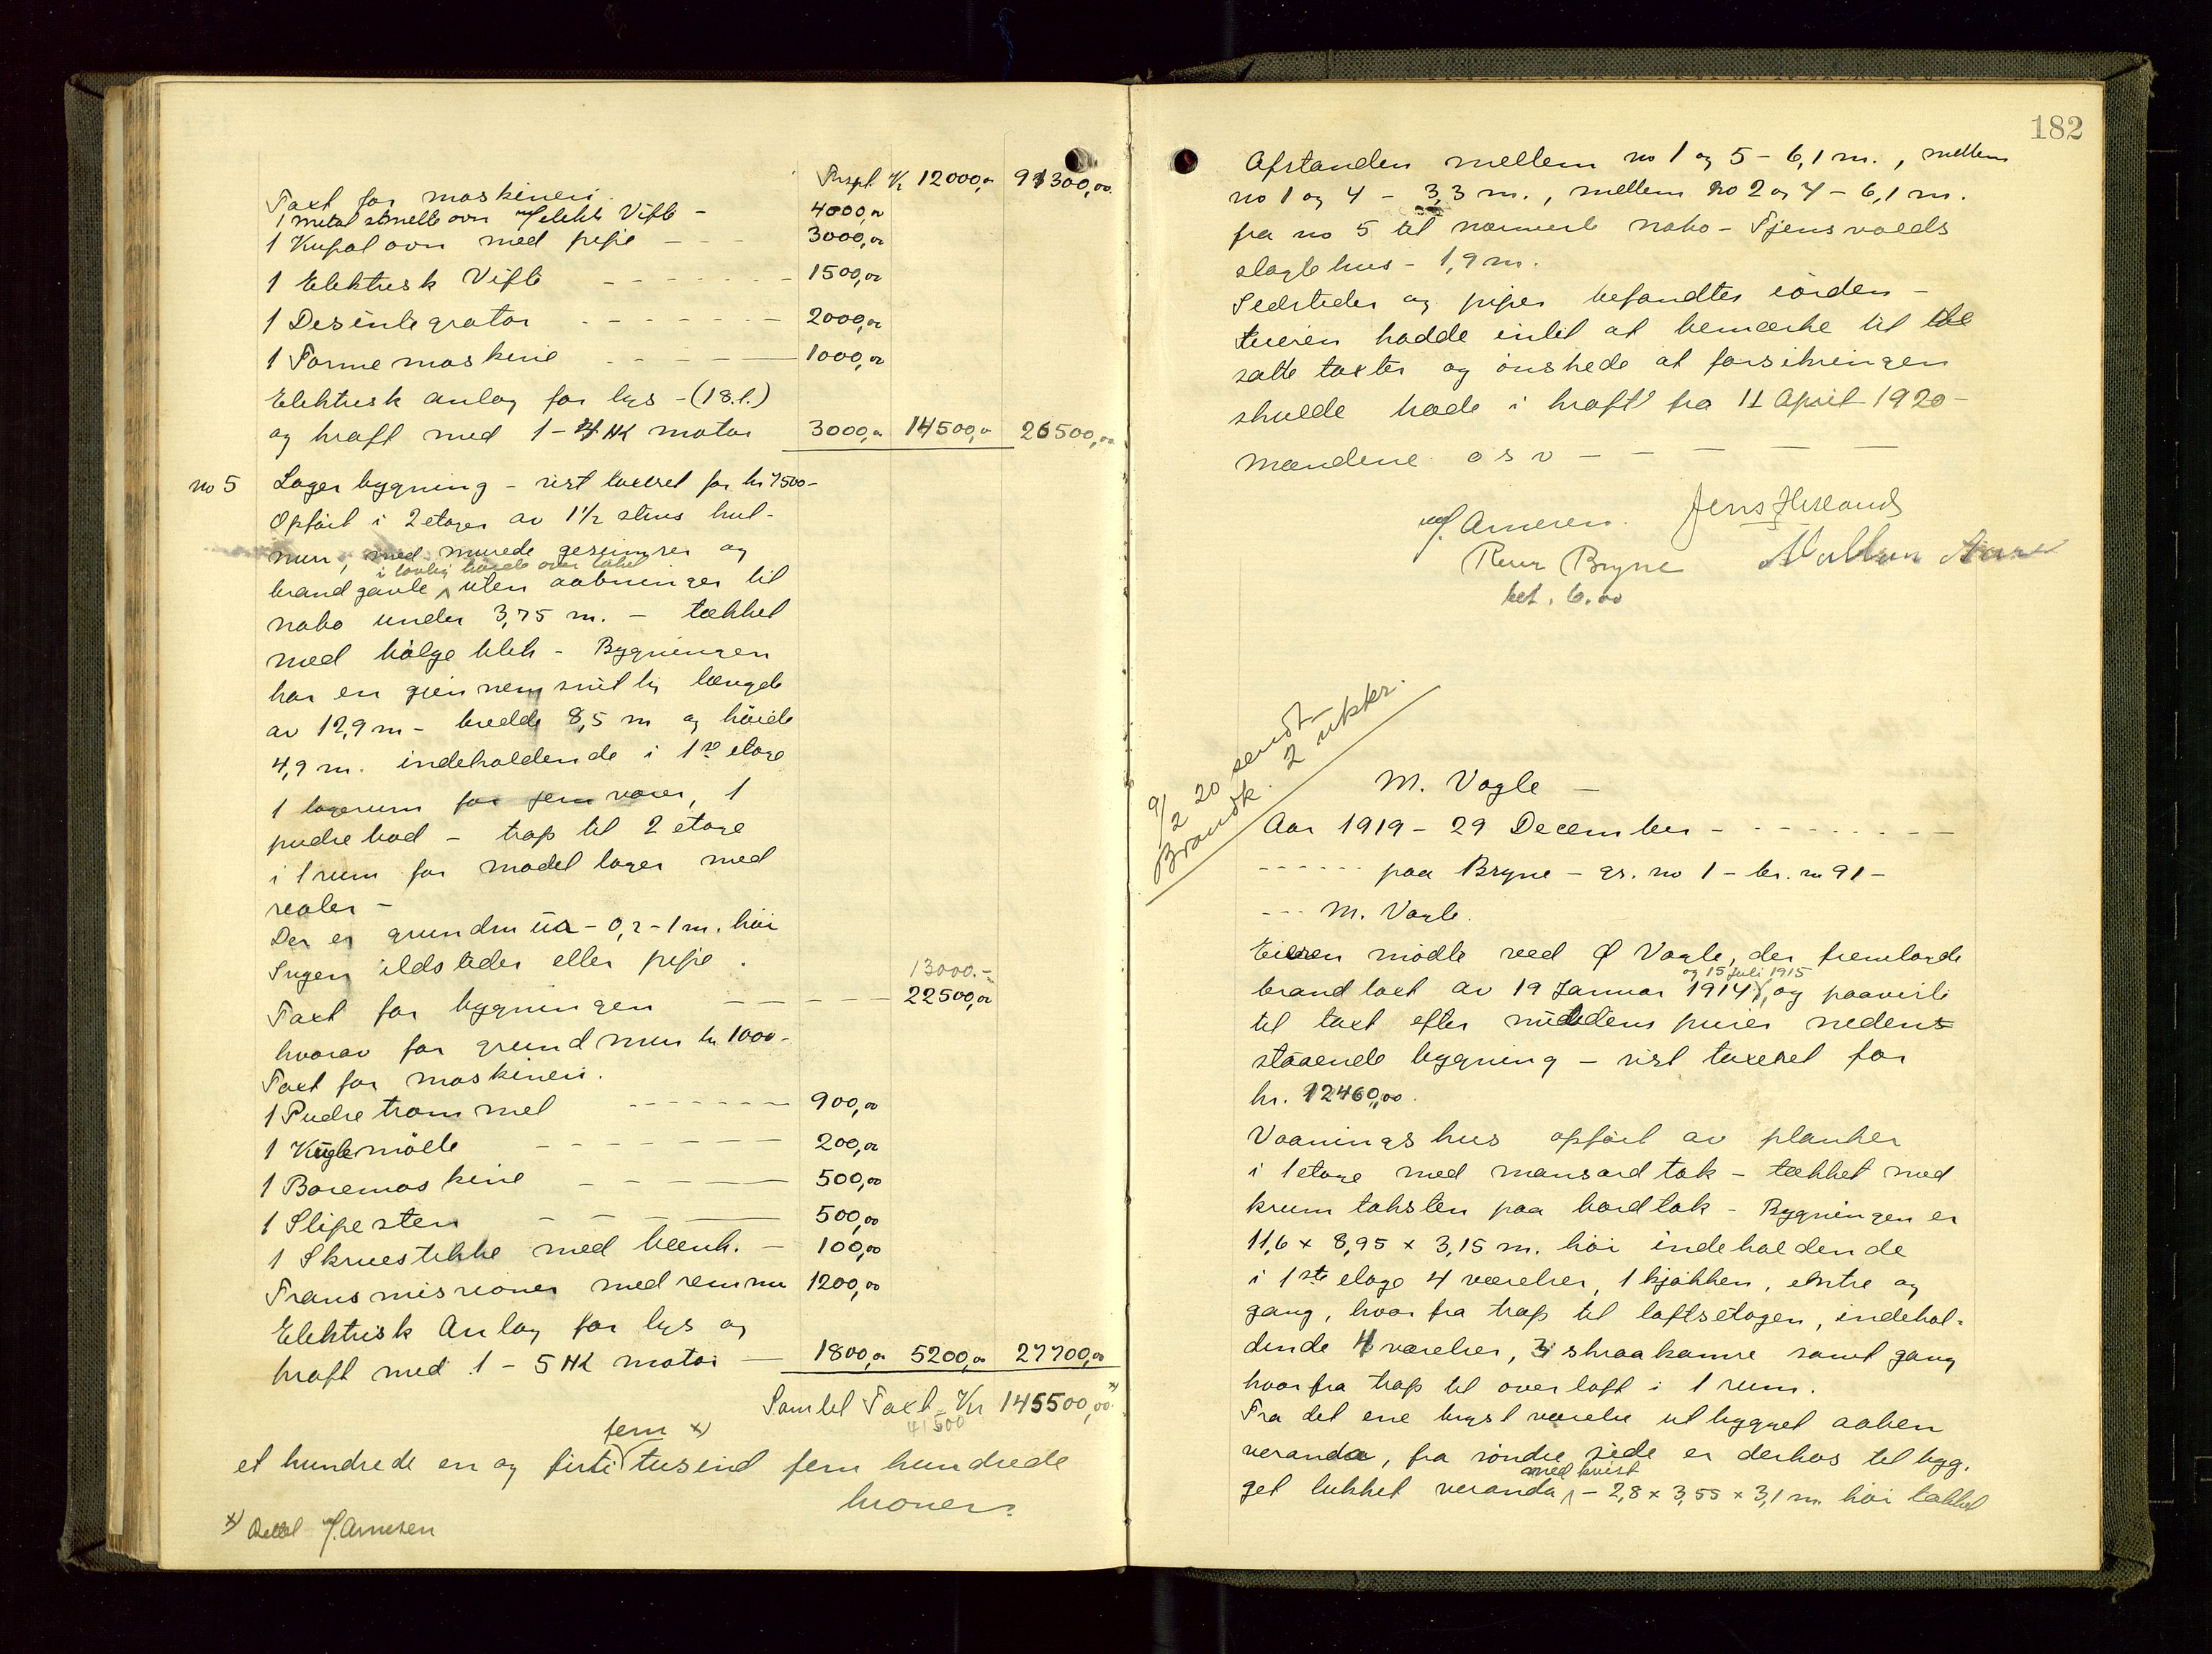 Trspt. Kr 12000,00 91300,00
Taxt for maskineri.
1 metal smelteovn m/elektr Vifte - 4000,00
1 Kupolovn med pipe - - - 3000,00
1 Elektrisk Vifte - - - - - - 1500,00
1 Desintegrator - - - - - - - 2000,00
1 Formemaskine - - - - - 1000,00
Elektrisk anlæg for lys - (18.l.)
og kraft med 1 - 4 HK motor 3000,00 14500,00 26500,00
no 5 Lagerbygning - sist taxeret for kr 7500-
Opført i 2 etager av 1½ stens hul-
mur, med murede gesimser og
i lovlig høide over taket
brandgavle uten aabninger til
nabo under 3,75 m. - tækket
med bølgeblek - Bygningen
har en gjennemsnitlig længde
av 12,9 m - bredde 8,5 m og høide
4,9 m. indeholdende i 1ste etage
1 lagerum for jern varer, 1
pudsebod - trap til 2 etage
i 1 rum for model lager med
reoler -
Der er grundmur - 0,2 - 1 m. høi
Ingen ildsteder eller pipe.
13000.-
Taxt for bygningen - - - - - 22500,00
hvorav for grundmur kr 1000-
Taxt for maskineri.
1 Pudsetrommel - - - - - - 900,00
1 Kuglemølle - - - - - - 200,00
1 Boremaskine - - - - - 500,00
1 Slipesten - - - - 500,00
1 Skruestikke med bænk. - 100,00
Transmissioner med remme 1200,00
Elektrisk Anlæg for lys og
kraft med 1 - 5 HK motor - 1800,00 5200,00 27700,00
Samlet Taxt Kr 145500,00 x)
41500
fem x)
et hundrede en og firti tusind fem hundrede
kroner.
x) Rettet M. Arnesen
182
Afstanden mellem no 1 og 5 - 6,1 m., mellem
no 1 og 4 - 3,3 m., mellem no 2 og 4 - 6,1 m.
fra no 5 til nærmeste nabo - Tjensvolds
slagtehus - 1,9 m.
Ildsteder og piper befandtes i orden -
Eieren hadde intet at bemærke til de
satte taxter og ønskede at forsikringen
skulde træde i kraft fra 11 April 1920 -
Mændene o s v - - - - -
M. Arnesen. Jens Hetland
Reier Bryne
bet. 6.00
9/2 20 sendt
Brandk. 2 utskr.
M. Vagle -
Aar 1919 - 29 December - - - - - - - -
- - - - - - paa Bryne - gr. no 1 - br. no 91 -
- - - M. Vagle.
Eieren mødte ved Ø Vagle, der fremlagde
og 15 juli 1915
brandtaxt av 19 Januar 1914, og paaviste
til taxt efter nutidens priser nedens
staaende bygning - sist taxeret for
kr. 12460,00.
Vaaningshus opført av planker
i 1 etage med mansard tak - tækket med
krum taksten paa bordtak - Bygningen er
11,6 x 8,95 x 3,15 m. høi indeholdende
i 1ste etage 4 værelser, 1 kjøkken, entre og
gang, hvorfra trap til loftsetagen, indehol-
dende 4 værelser, 3 skraakamre samt gang
hvorfra trap til overloft i 1 rum.
Fra det ene kvistværelse utbygget aaben
veranda, fra søndre side er derhos tilbyg-
med kvist
get lukket veranda - 2,8 x 3,55 x 3,1 m høi tækket